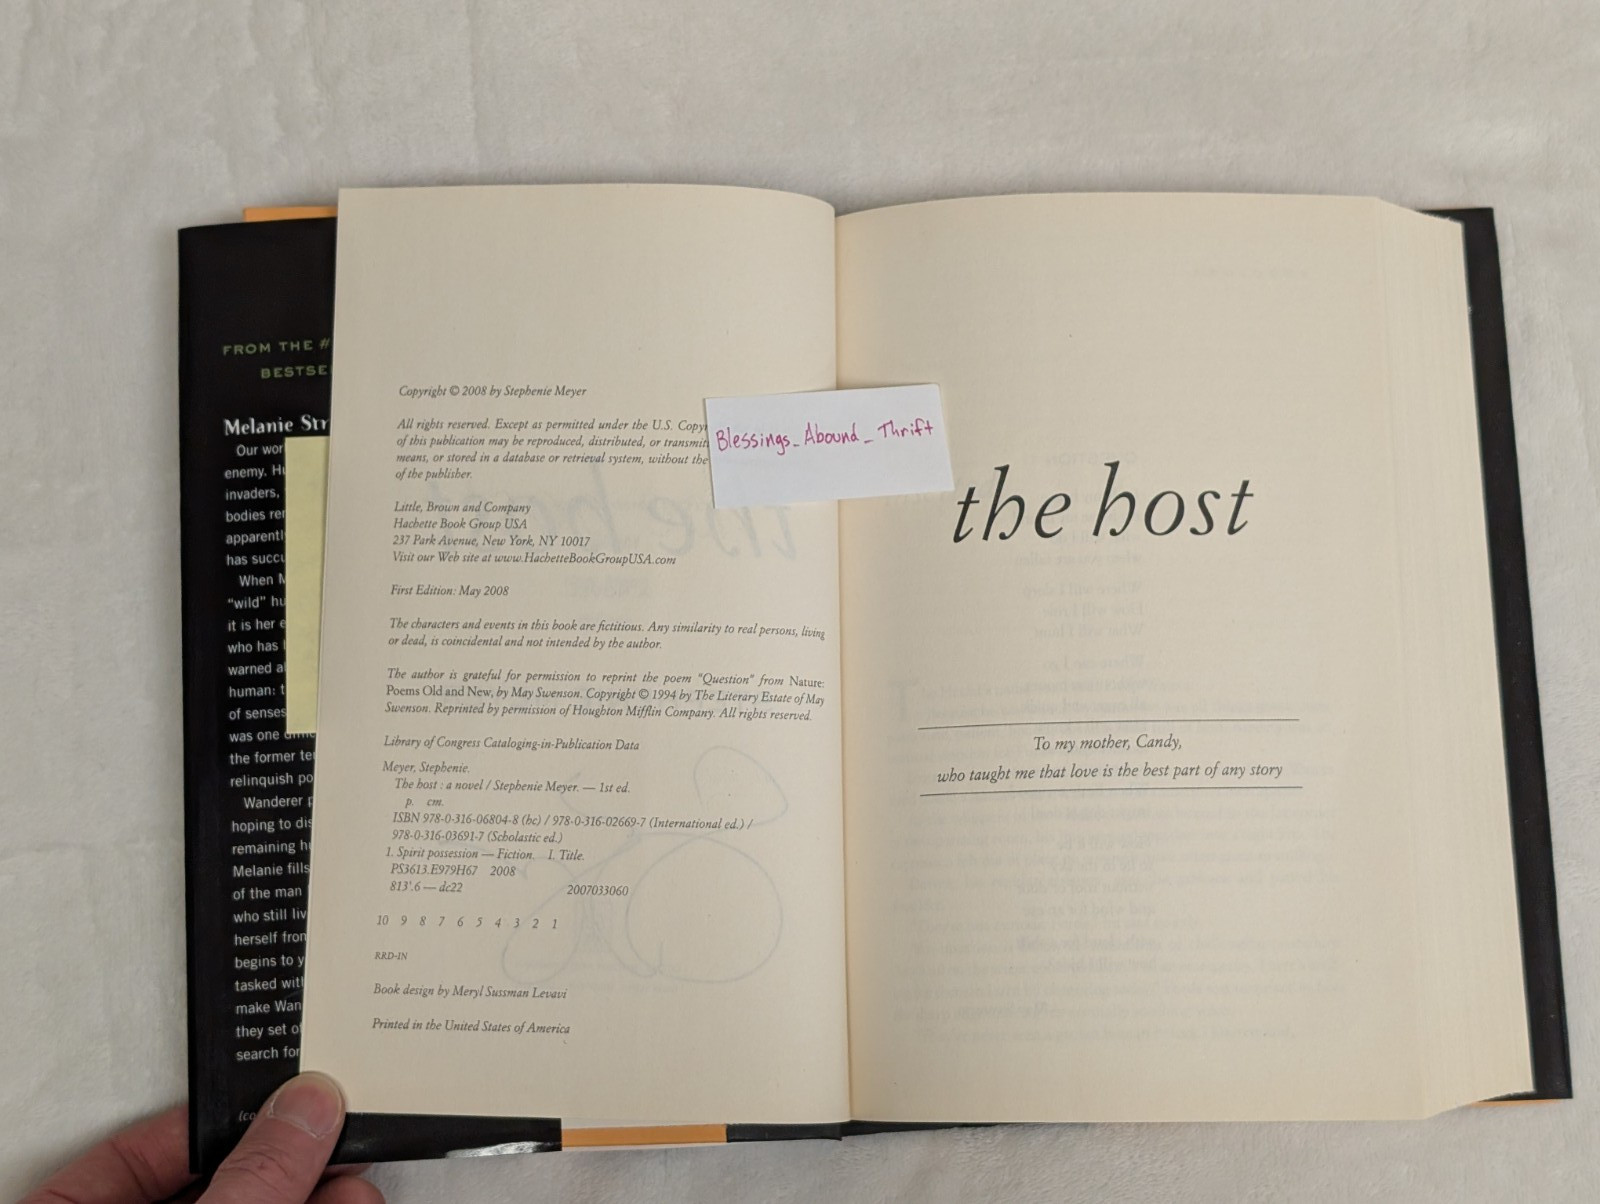 FROM THE #
BESTSE
Melanie Str
Our wor
enemy. Hu
invaders,
bodies rem
apparentl
has succu
When M
"wild" hu
it is her e
who has l
warned a
human: t
of senses
was one
the former te
relinquish po
Wanderer p
hoping to dis
remaining hu
Melanie fills
of the man
who still liv
herself from
begins to y
tasked with
make Wan
they set o
search for
(co
Copyright © 2008 by Stephenie Meyer
All rights reserved. Except as permitted under the U.S. Copy
of this publication may be reproduced, distributed, or transmit
means, or stored in a database or retrieval system, without the
of the publisher.
Little, Brown and Company
Hachette Book Group USA
237 Park Avenue, New York, NY 10017
Visit our Web site at www.HachetteBookGroupUSA.com
First Edition: May 2008
The characters and events in this book are fictitious. Any similarity to real persons, living
or dead, is coincidental and not intended by the author.
The author is grateful for permission to reprint the poem "Question" from Nature:
Poems Old and New, by May Swenson. Copyright © 1994 by The Literary Estate of May
Swenson. Reprinted by permission of Houghton Mifflin Company. All rights reserved.
Library of Congress Cataloging-in-Publication Data
Meyer, Stephenie.
The host : a novel / Stephenie Meyer. — 1st ed.
p. cm.
ISBN 978-0-316-06804-8 (hc) / 978-0-316-02669-7 (International ed.) /
978-0-316-03691-7 (Scholastic ed.)
1. Spirit possession — Fiction. I. Title.
PS3613.E979H67 2008
813'.6 — dc22 2007033060
10 9 8 7 6 5 4 3 2 1
RRD-IN
Book design by Meryl Sussman Levavi
Printed in the United States of America
Blessings_Abound_Thrift
the host
To my mother, Candy,
who taught me that love is the best part of any story